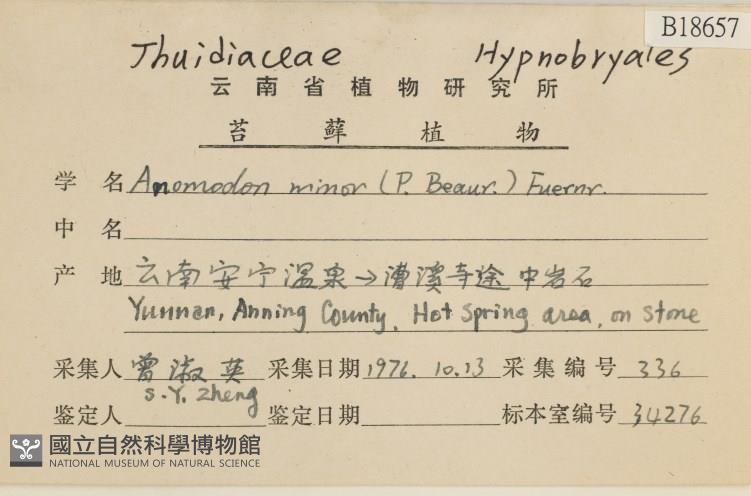 B18657
Thuidiaceae Hypnobryales
云南省植物研究所
苔藓植物
学名 Anomodon minor (P. Beauv.) Fuernr.
中名
产地 云南安宁温泉→漕溪寺途中岩石
Yunnan, Anning County, Hot spring area, on stone
采集人 曾淑英 采集日期 1976. 10.13 采集编号 336
S.Y. Zheng
鉴定人 鉴定日期 标本室编号 34276
國立自然科學博物館
NATIONAL MUSEUM OF NATURAL SCIENCE